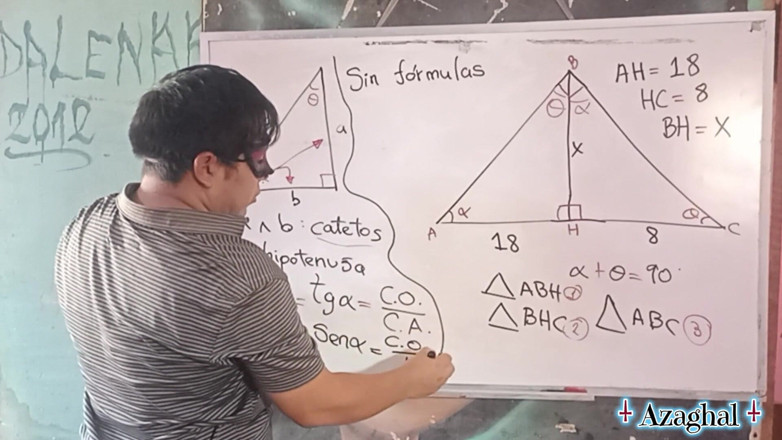 DALENA
2012
θ
a
b
b: catetos
hipotenusa
= tgα = C.O.
C.A.
Senα = C.O.
Sin fórmulas
B
θ α
x
α
θ
A
H
C
18
8
AH = 18
HC = 8
BH = X
α + θ = 90°
△ ABH ①
△ BHC ② △ ABC ③
Azaghal